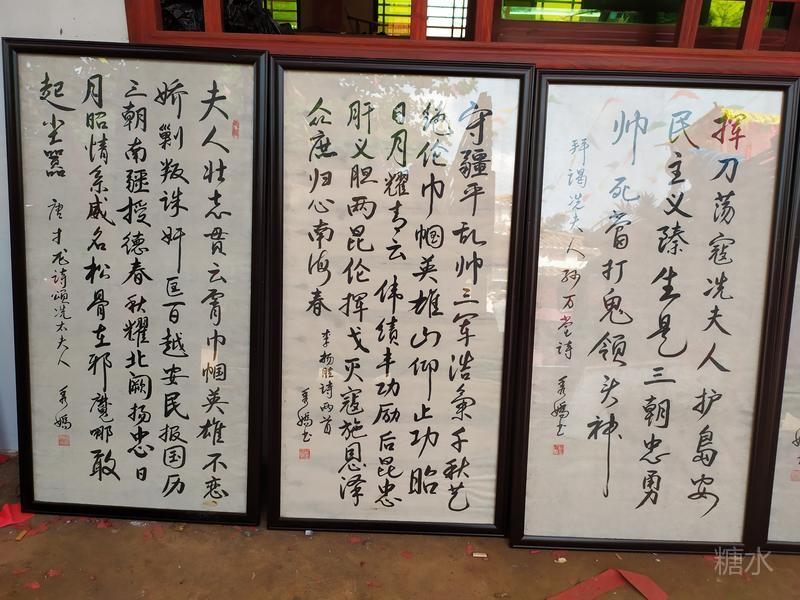 夫人壮志贯云霄巾帼英雄不恋
娇剿叛诛奸匡百越安民报国历
三朝南疆授德春秋耀北阙扬忠日
月昭情系威名松骨在邪魔哪敢
起尘嚣 唐才龙诗颂冼太夫人
守疆平乱帅三军浩气千秋艺
绝伦巾帼英雄山仰止功昭
日月耀青云 伟绩丰功励后昆忠
肝义胆两昆伦挥戈灭寇施恩泽
众庶归心南海春 李扬胜诗两首
挥刀荡寇冼夫人护岛安
民主义臻生是三朝忠勇
帅死当打鬼领头神
拜谒冼夫人 孙万堂诗
糖水